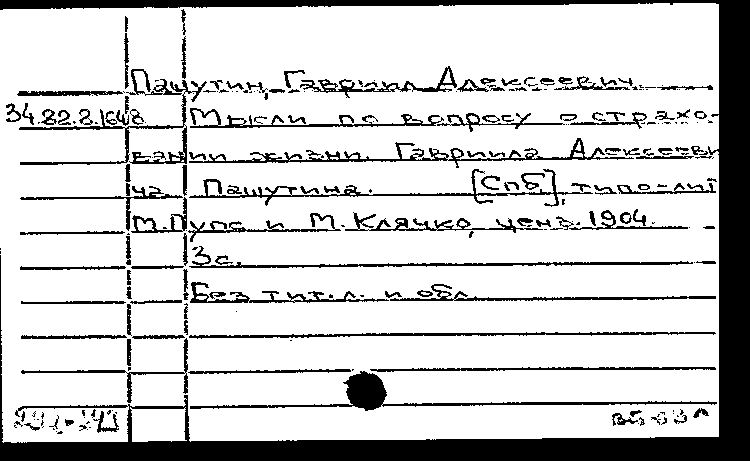 Пашутин, Гавриил Алексеевич.
34.82.8.1648 Мысли по вопросу о страхо-
вании жизни. Гавриила Алексееви
ча Пашутина. [Спб], типо-лит
М. Пупс и М. Клячко, ценз. 1904.
3с.
Без тит.л. и обл.